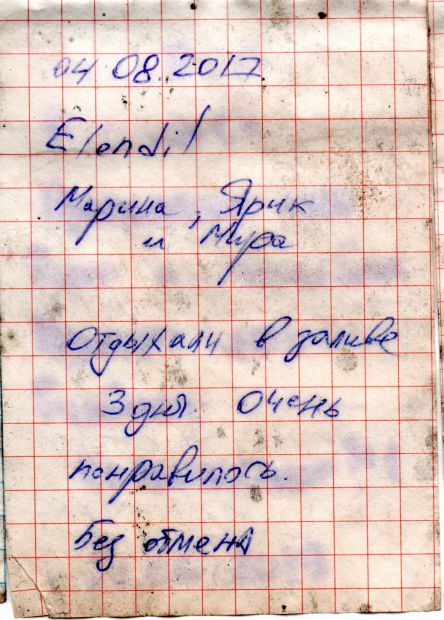 04 08.2017
Elendil
Марина, Ярик
и Мура
Отдыхали в заливе
3 дня. Очень
понравилось.
Без обмена